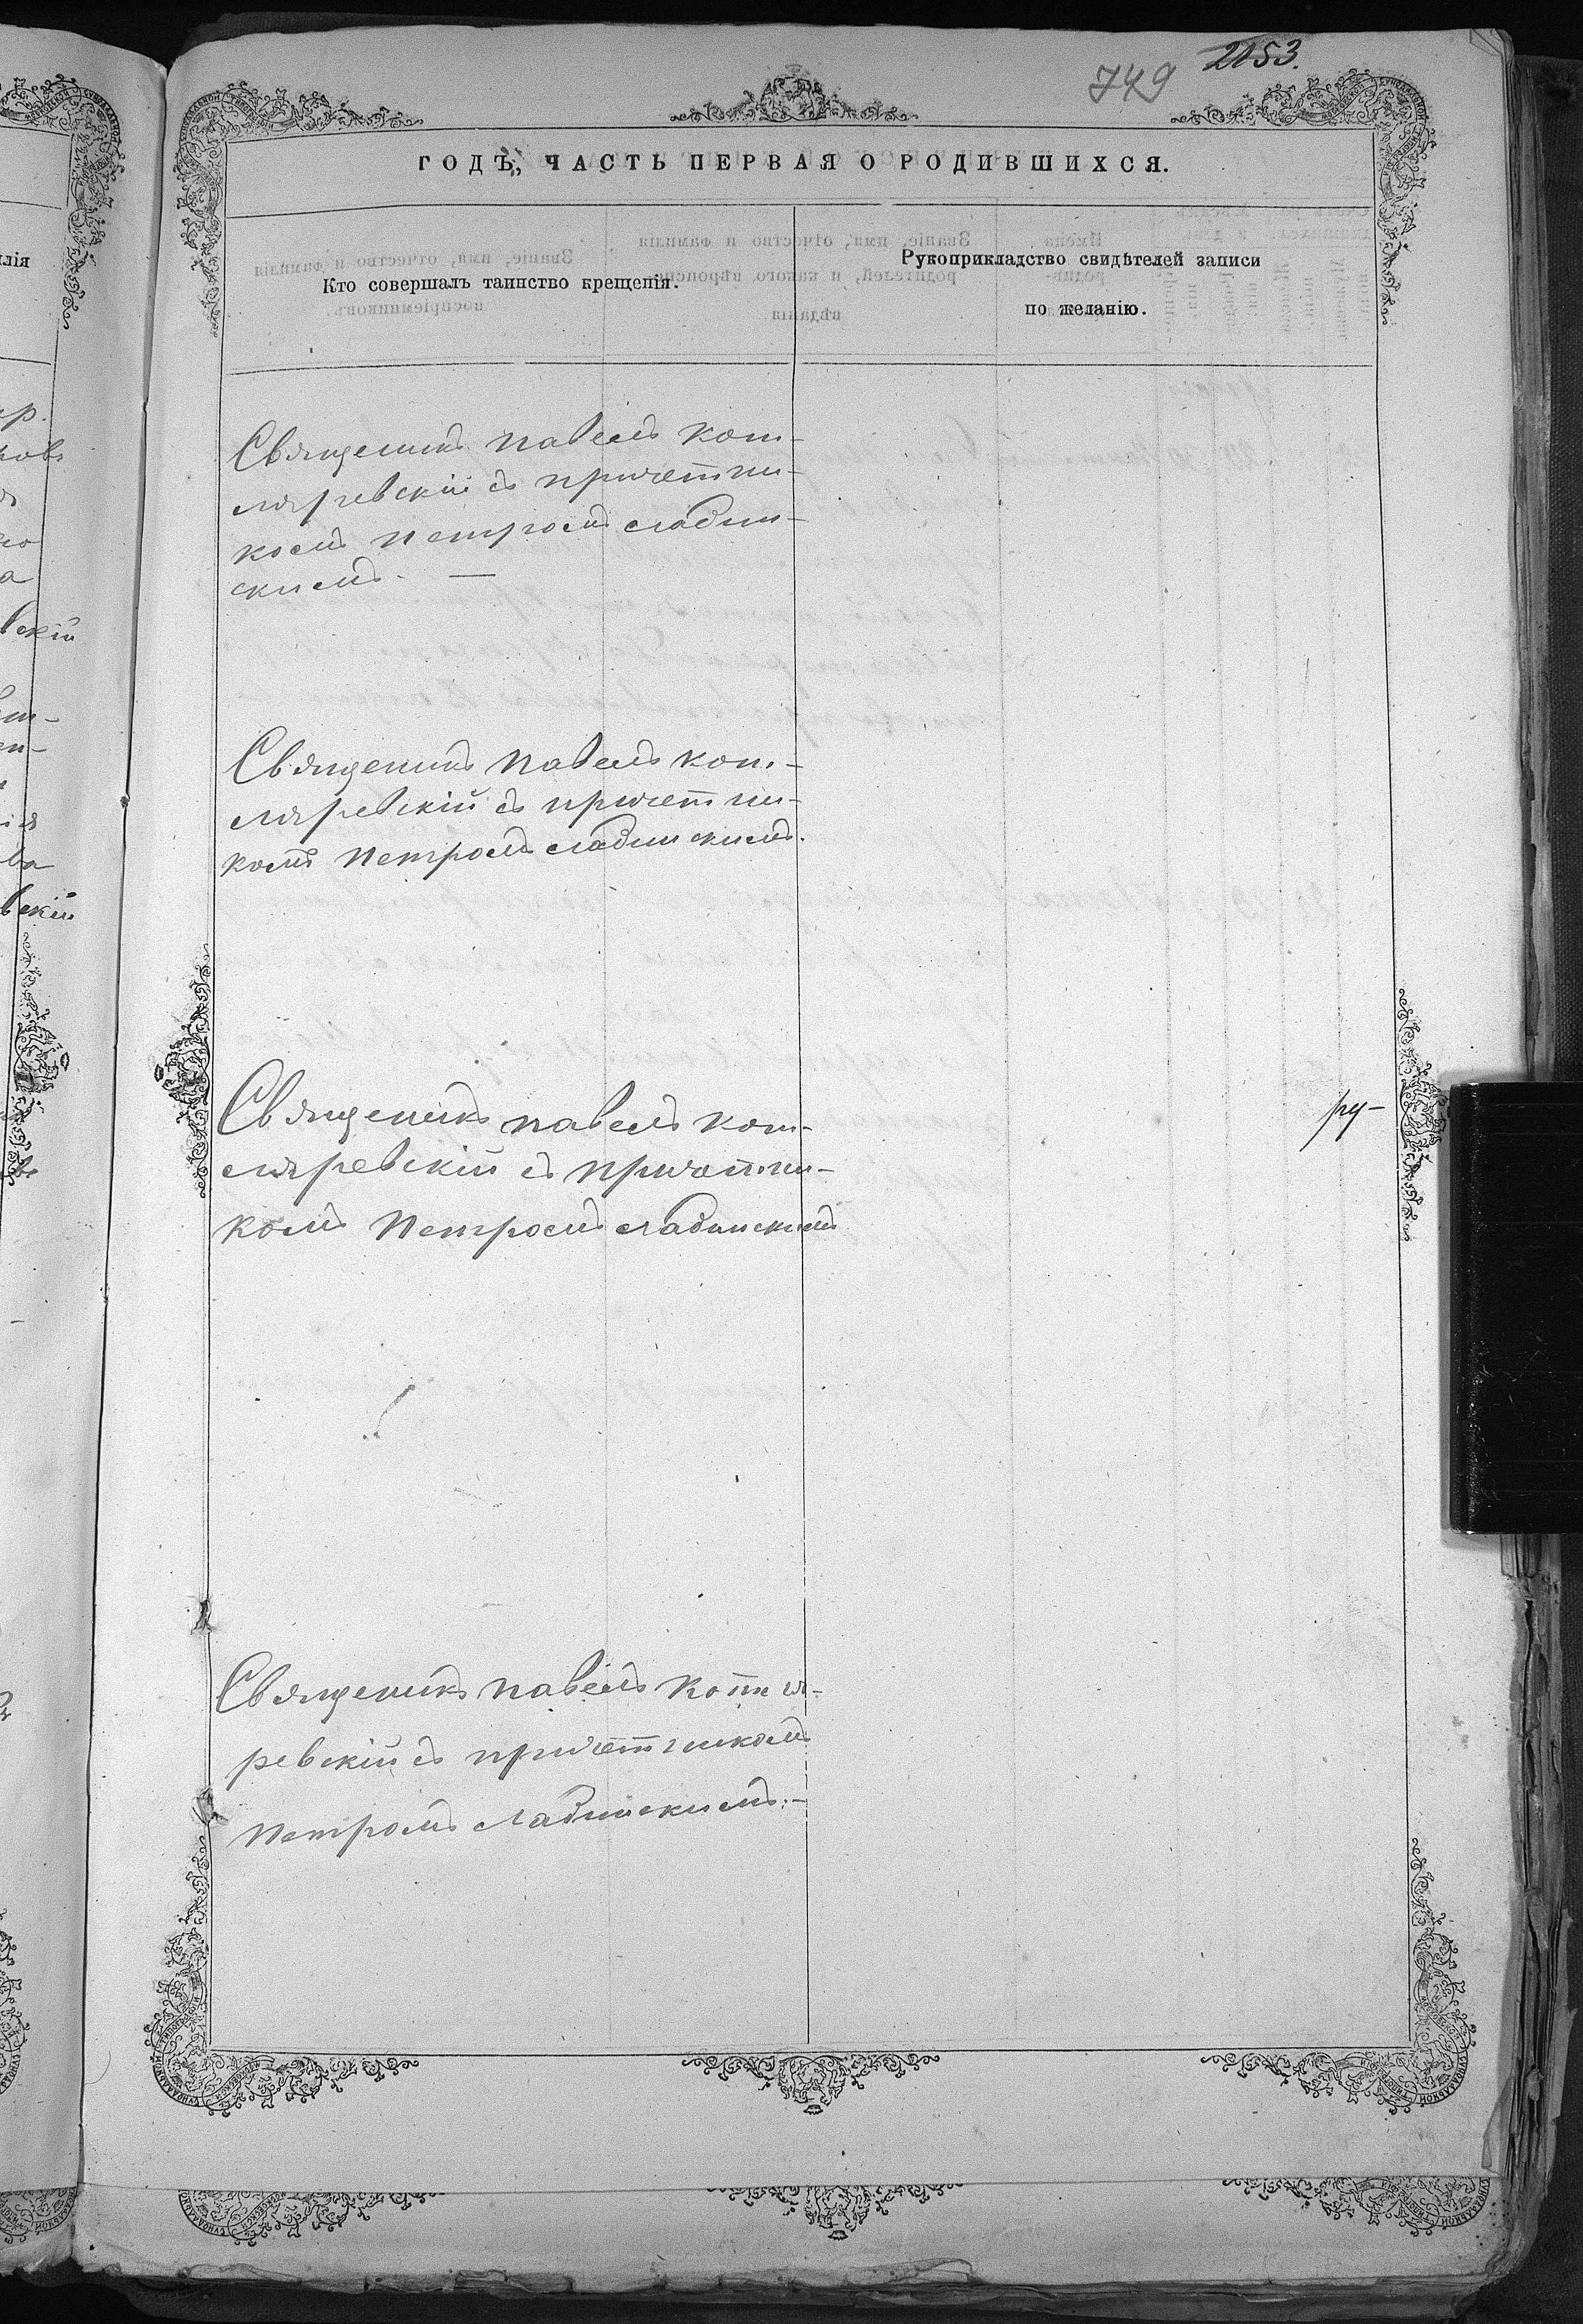 749 2153.
ГОДЪ, ЧАСТЬ ПЕРВАЯ О РОДИВШИХСЯ.
Кто совершалъ таинство крещенія.
Рукоприкладство свидѣтелей записи
по желанію.
Священикъ Павелъ Кот-
ляревскій съ причетни-
комъ Петромъ Ладин-
скимъ. —
Священикъ Павелъ Кот-
ляревскій съ причетни-
комъ Петромъ Ладинскимъ.
Священикъ Павелъ Кот-
ляревскій съ причетни-
комъ Петромъ Ладинскимъ
ру-
Священикъ Павелъ Котля-
ревскій съ причетникомъ
Петромъ Ладинскимъ.-